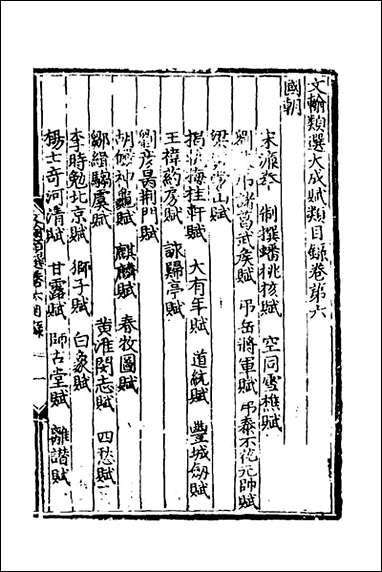 文翰類選大成賦類目錄卷第六
國朝
宋濂 奉制撰蟠桃核賦 空同雪樵賦
劉 弔諸葛武侯賦 弔岳將軍賦 弔泰不花元帥賦
梁 山賦
揭 梅桂軒賦 大有年賦 道統賦 豐城劔賦
王褘 約房賦 詠歸亭賦
劉彥昺 荆門賦
胡儼 神龜賦 麒麟賦 春牧圖賦
鄒緝 騶虞賦 黃淮 閔志賦 四愁賦
李時勉 北京賦 獅子賦 白象賦
楊士奇 河清賦 甘露賦 師古堂賦 離諧賦